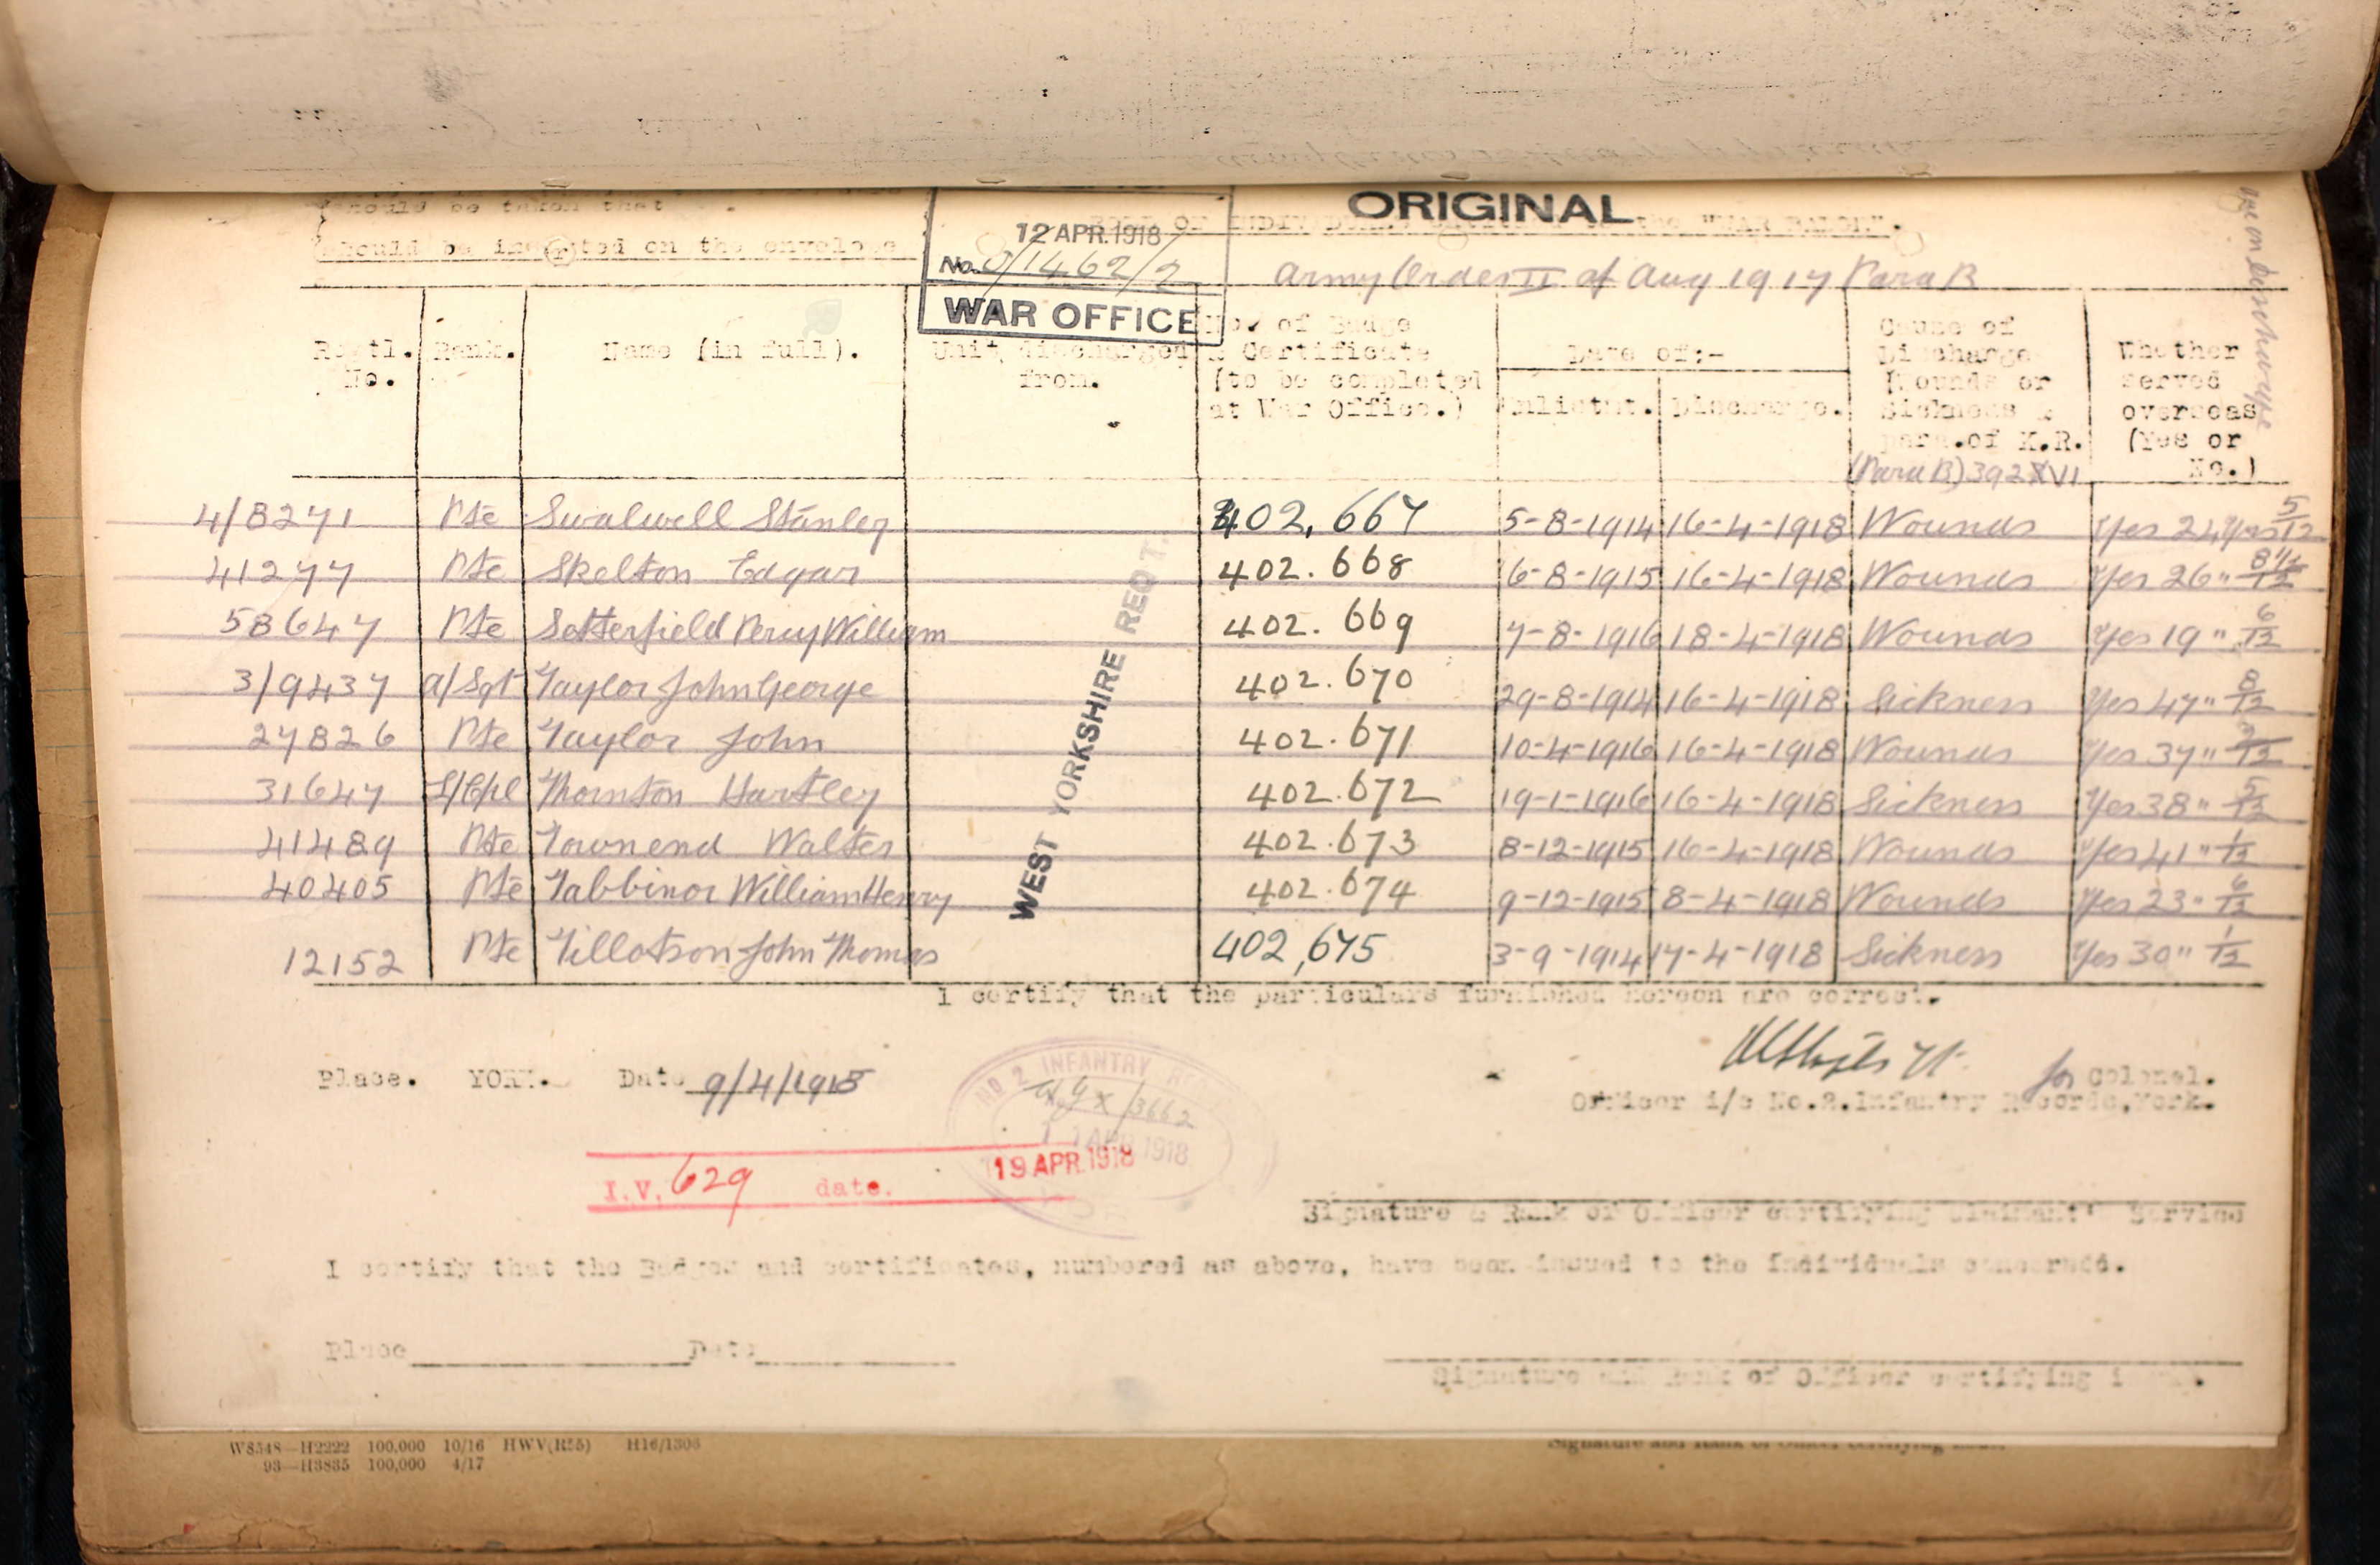 should be taken that
should be inserted on the envelope
12 APR. 1918
No. 8/1462/2
WAR OFFICE
ORIGINAL
ROLL OF INDIVIDUALS entitled to the "WAR BADGE".
Army Order II of Aug 1917 Para B
Age on Discharge
Regtl. No. Rank. Name (in full). Unit discharged from. No. of Badge & Certificate (to be completed at War Office.) Date of:- Enlistmt. Discharge. Cause of Discharge (Wounds or Sickness & para. of K.R. Whether served overseas (Yes or No.)
(Para B) 392 XVI
4/8271 Pte Swalwell Stanley 402,667 5-8-1914 16-4-1918 Wounds Yes 24 Yrs 5/12
41277 Pte Skelton Edgar 402.668 6-8-1915 16-4-1918 Wounds Yes 26 " 8 1/2/12
58647 Pte Setterfield Percy William 402.669 7-8-1916 18-4-1918 Wounds Yes 19 " 6/12
3/9437 A/Sgt Taylor John George 402.670 29-8-1914 16-4-1918 Sickness Yes 47 " 8/12
27826 Pte Taylor John 402.671 10-4-1916 16-4-1918 Wounds Yes 37 "
31647 L/Cpl Thornton Hartley 402.672 19-1-1916 16-4-1918 Sickness Yes 38 " 5/12
41489 Pte Townend Walter 402.673 8-12-1915 16-4-1918 Wounds Yes 41 " 1/12
40405 Pte Tabbinor William Henry 402.674 9-12-1915 8-4-1918 Wounds Yes 23 " 6/12
12152 Pte Tillotson John Thomas 402,675 3-9-1914 17-4-1918 Sickness Yes 30 " 1/12
WEST YORKSHIRE REGT.
I certify that the particulars furnished hereon are correct.
Place. YORK. Date 9/4/1918
for Colonel.
Officer i/c No.2. Infantry Records, York.
NO 2 INFANTRY
/3662
11 APR 1918
I.V. 629 date. 19 APR. 1918
Signature & Rank of Officer certifying Claimant' Service
I certify that the Badges and certificates, numbered as above, have been issued to the individuals concerned.
Place Date
Signature and Rank of Officer certifying
W8548—H2222 100,000 10/16 HWV(R55) H16/1306
93—H3835 100,000 4/17
Signature and Rank of Officer certifying